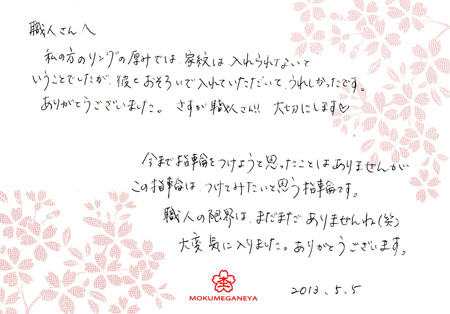 職人さんへ
私の方のリングの厚みでは、家紋は入れられないと
いうことでしたが、彼とおそろいで入れていただいて、うれしかったです。
ありがとうございました。さすが職人さん!! 大切にします♡
今まで指輪をつけようと思ったことはありませんが
この指輪は、つけてみたいと思う指輪です。
職人の限界は、まだまだありませんね(笑)
大変気に入りました。ありがとうございます。
MOKUMEGANEYA
2013.5.5